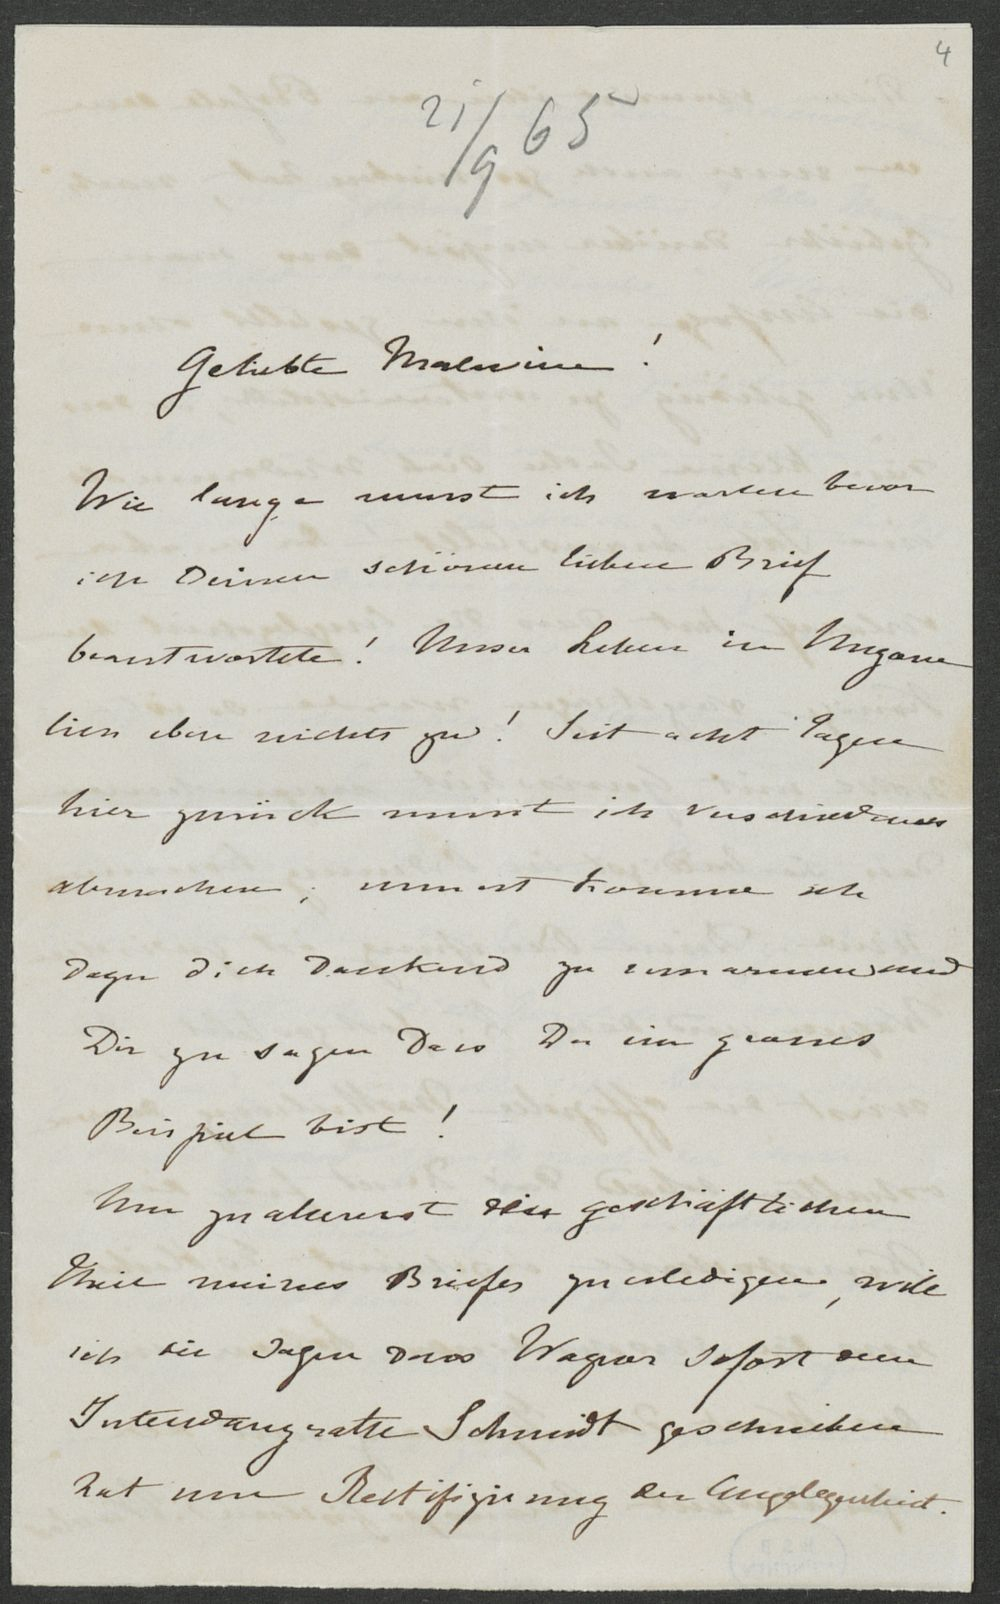 4
21/9 65
Geliebte Malwine!
Wie lange musst ich warten bevor
ich Deinen schönen lieben Brief
beantwortete! Unser Leben in Ungarn
liess eben nichts zu! Seit acht Tagen
hier zurück musst ich Verschiednes
abmachen, nun erst komme ich
dazu dich dankend zu umarmen und
Dir zu sagen dass Du ein grosses
Beispiel bist!
Um zuallererst den geschäftlichen
Theil meines Briefes zu erledigen, will
ich dir sagen dass Wagner sofort dem
Intendanzrathe Schmidt geschrieben
hat um Rectifizirung der Angelegenheit.